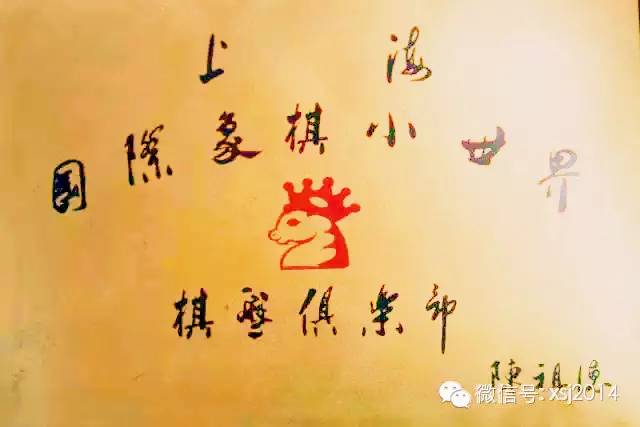 上海
国際象棋小世界
棋盤俱樂部
陳祖德
微信号: xsj2014